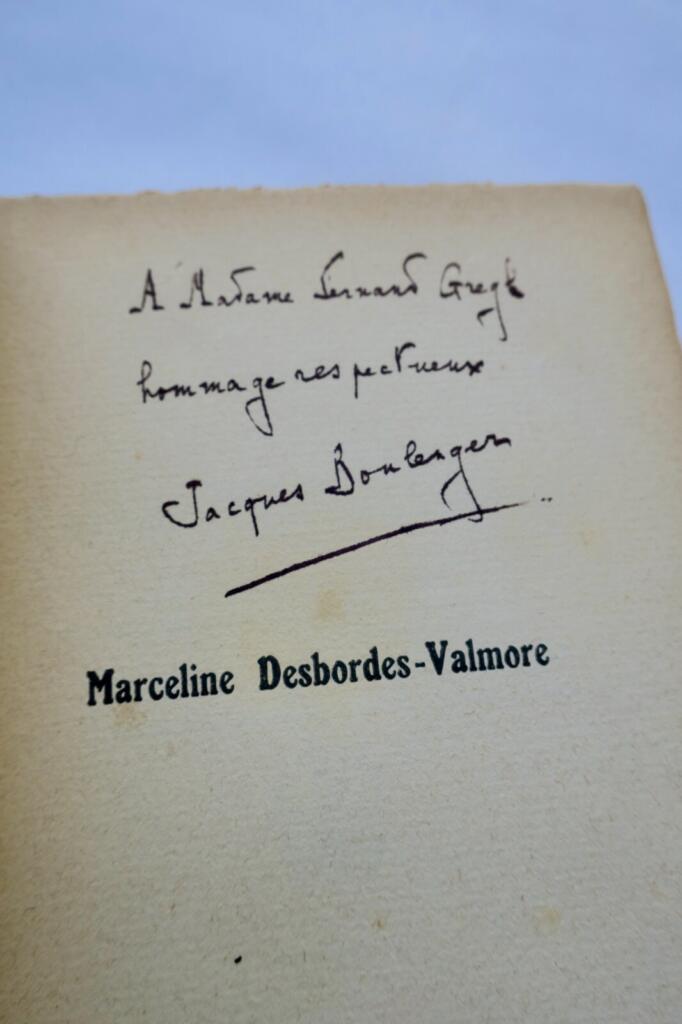 A Madame Fernand Gregh
hommage respectueux
Jacques Boulenger
Marceline Desbordes-Valmore